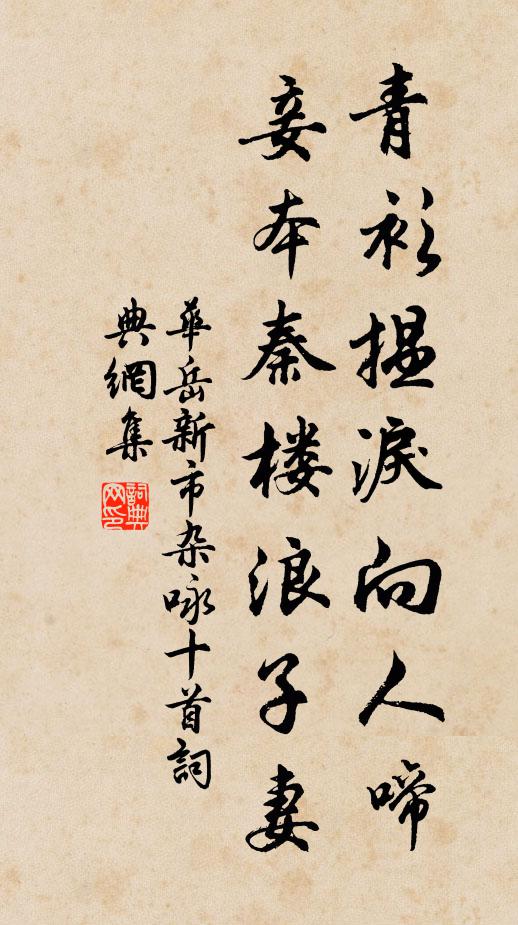 青衫揾淚向人啼
妾本秦楼浪子妻
華岳新市杂咏十首詞
典網集
詞典
网印